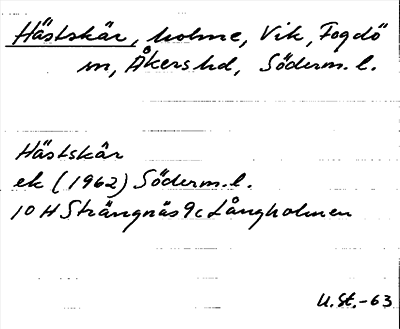 Hästskär, holme, Vik, Fogdö
sn, Åkers hd, Söderm. l.
Hästskär
ek (1962) Söderm. l.
10 H Strängnäs 9c Långholmen
U.St.-63